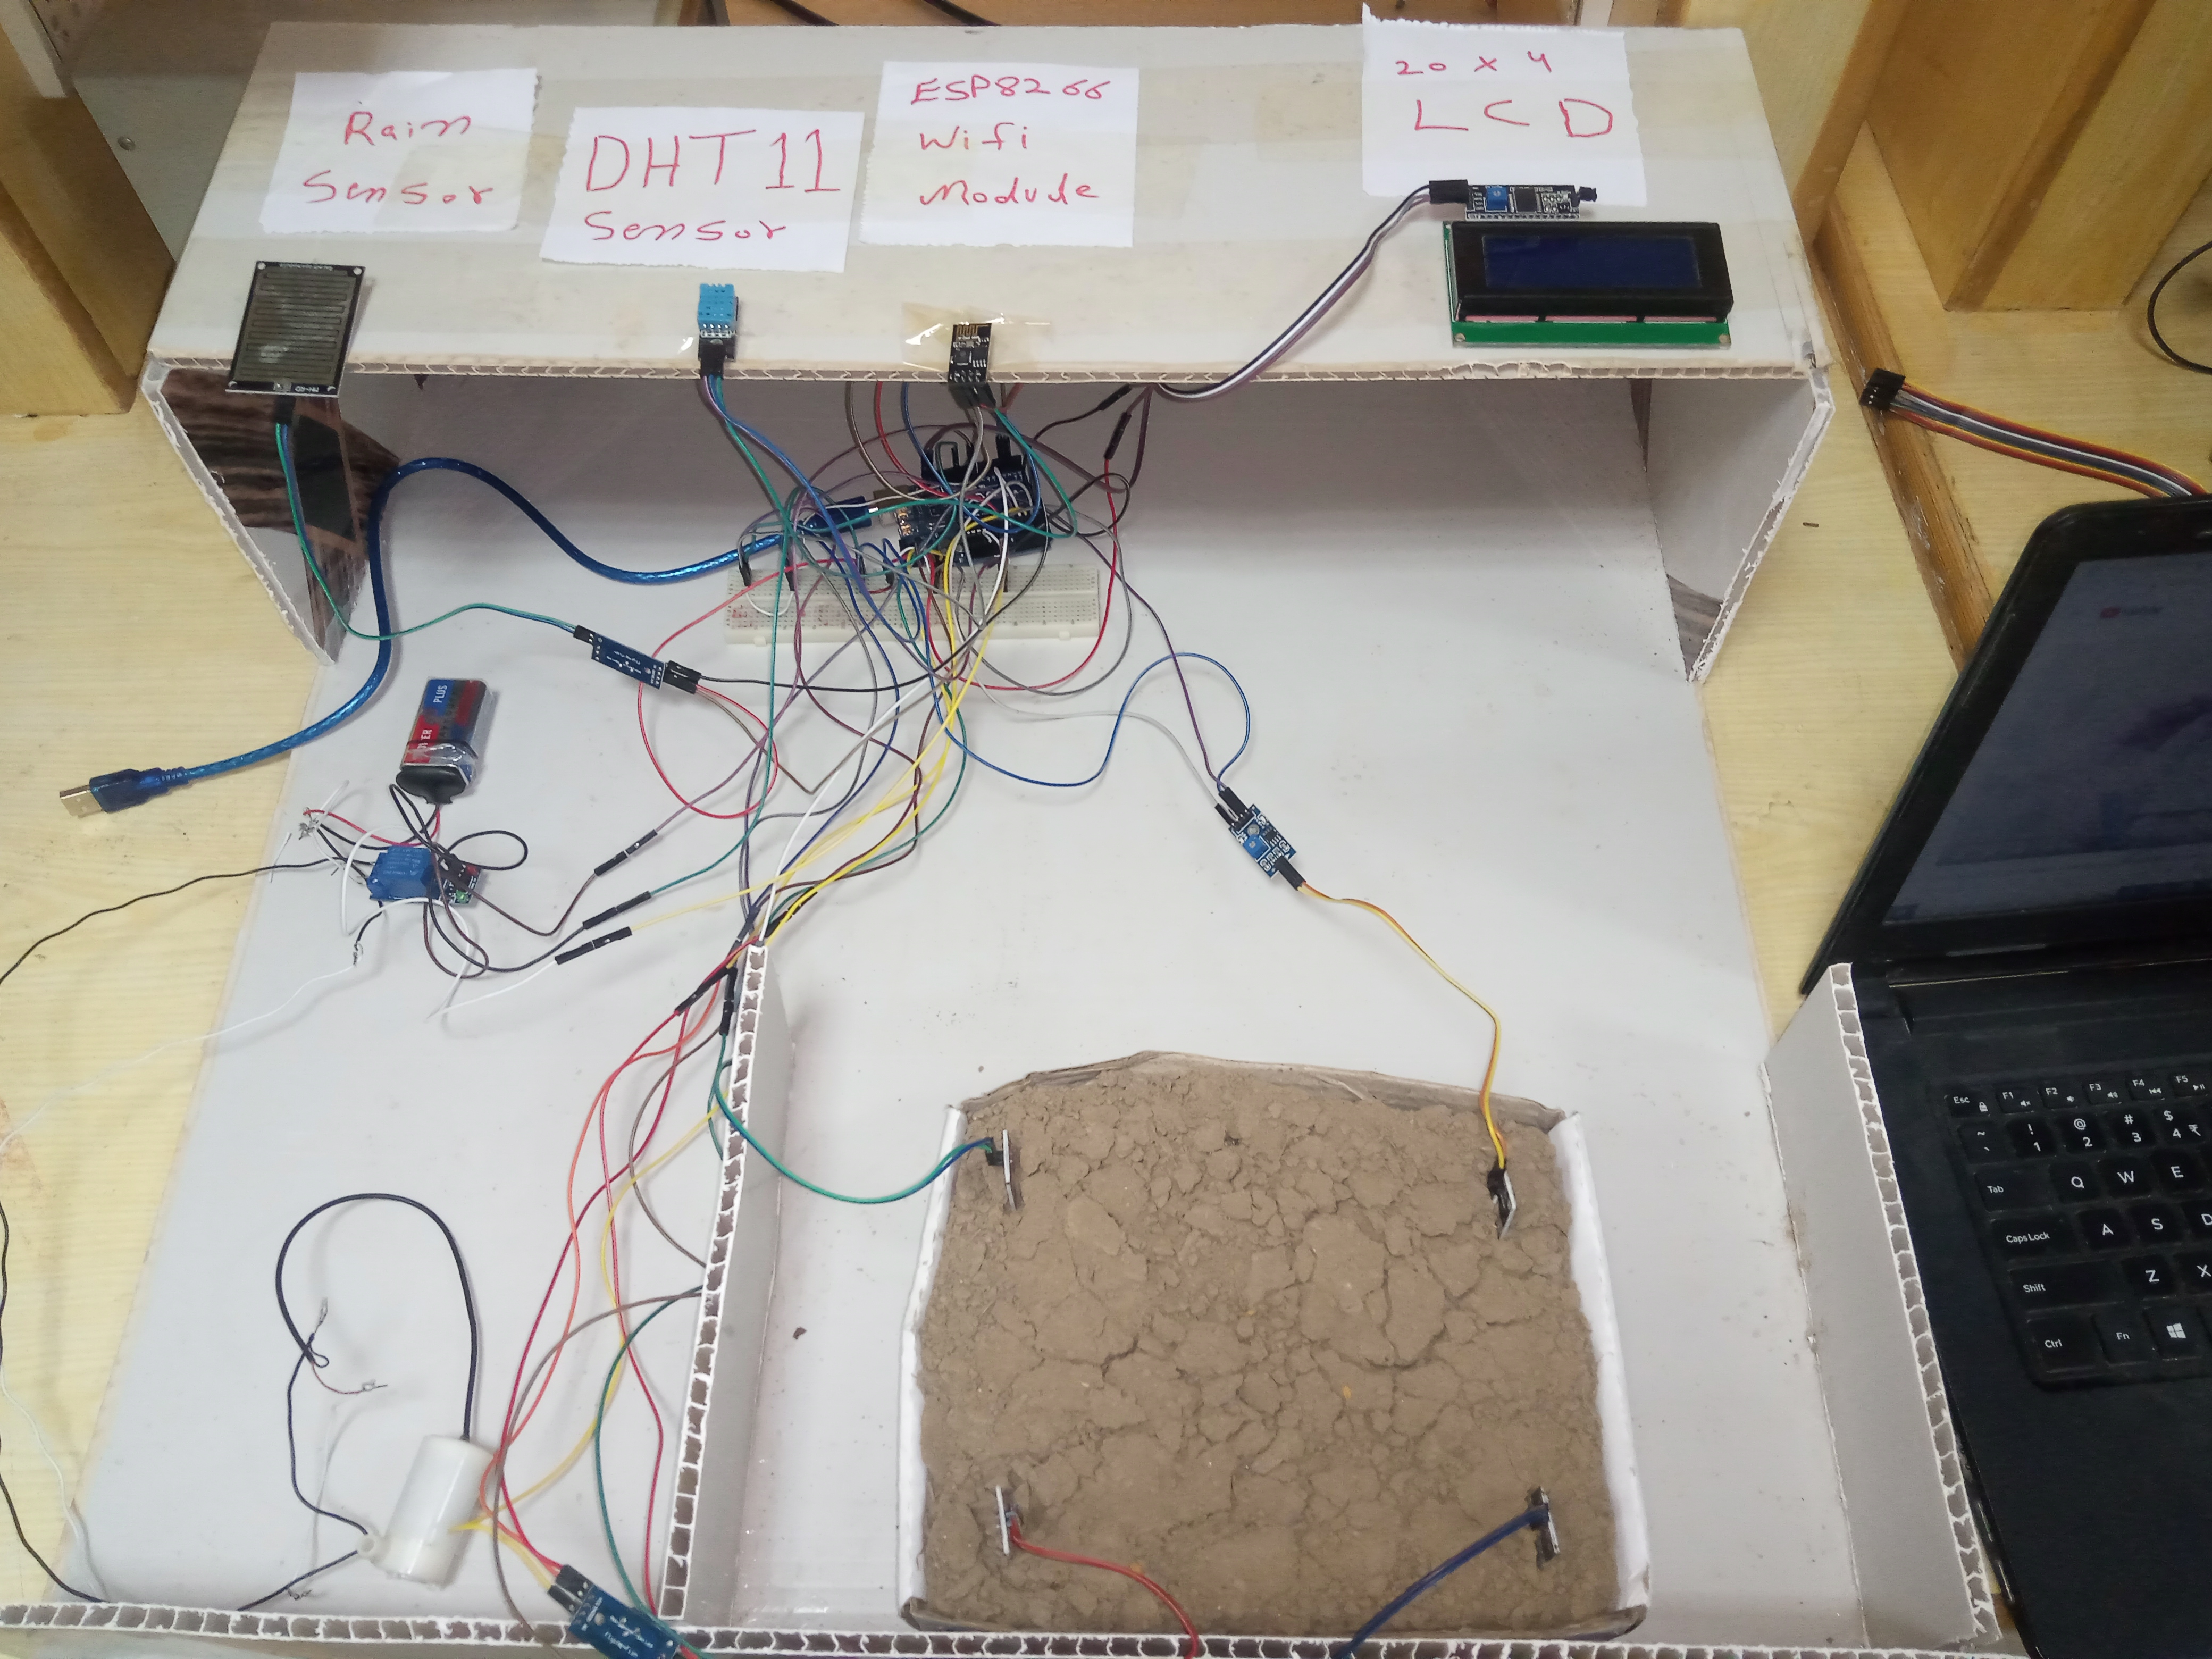 Rain
Sensor
DHT11
Sensor
ESP8266
Wifi
Module
20 x 4
LCD
PLUS
Esc
F1
F2
F3
F4
F5
~
`
!
1
@
2
#
3
$
4
₹
Tab
Q
W
E
Caps Lock
A
S
D
Shift
Z
X
Ctrl
Fn